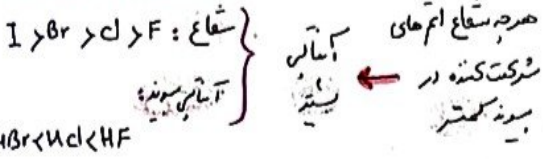 هرچه شعاع اتم های
شرکت کننده در
پیوند کمتر
← آنتالپی
بیشتر
شعاع : I > Br > Cl > F
آنتالپی پیوند:
HBr < HCl < HF